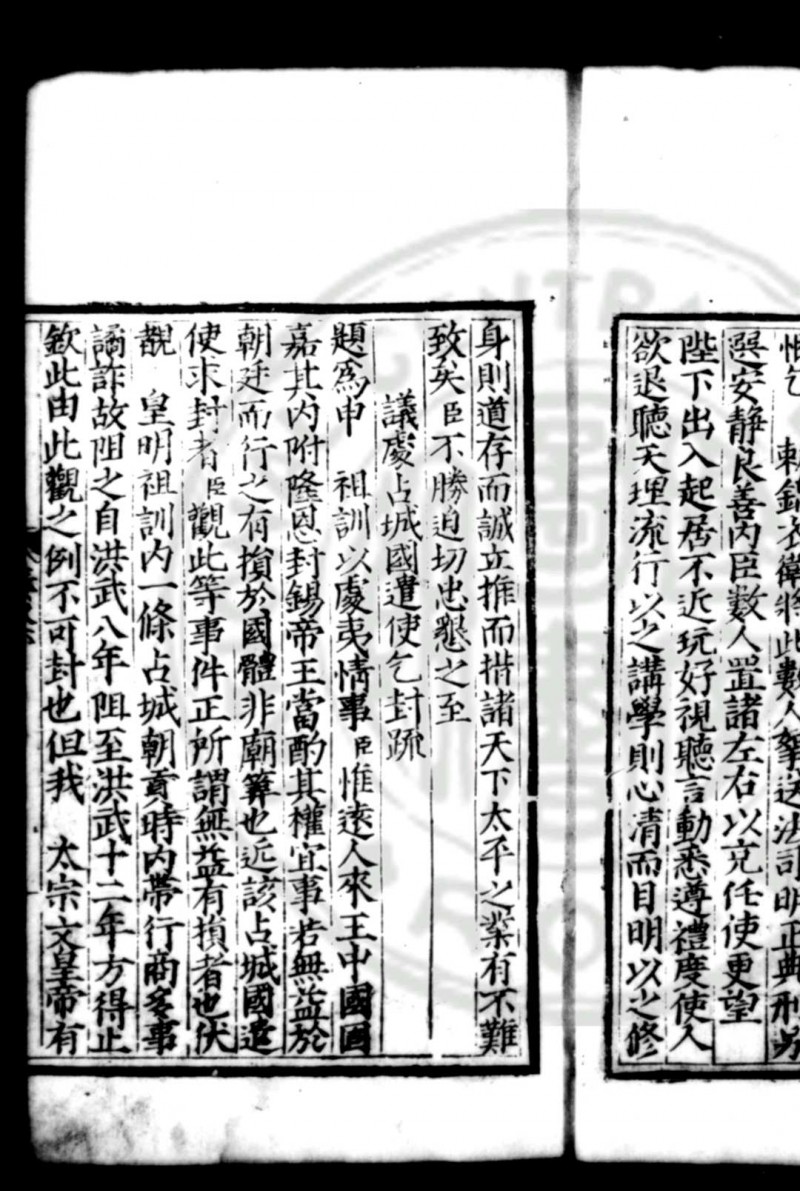 惧乞　　敕錦衣衛將此數人拏送法司明正典刑另
選安靜良善內臣數人置諸左右以充任使更望
陛下出入起居不近玩好視聽言動悉遵禮度使人
欲退聽天理流行以之講學則心清而目明以之修
身則道存而誠立推而措諸天下太平之業有不難
致矣臣不勝迫切忠懇之至
議處占城國遣使乞封疏
題為申　祖訓以處夷情事臣惟遠人來王中國固
嘉其內附隆恩封錫帝王當酌其權宜事若無益於
朝廷而行之有損於國體非廟筭也近該占城國遣
使求封者臣觀此等事件正所謂無益有損者也伏
覩　皇明祖訓內一條占城朝貢時內帶行商多事
譎詐故阻之自洪武八年阻至洪武十二年方得止
欽此由此觀之例不可封也但我　太宗文皇帝有